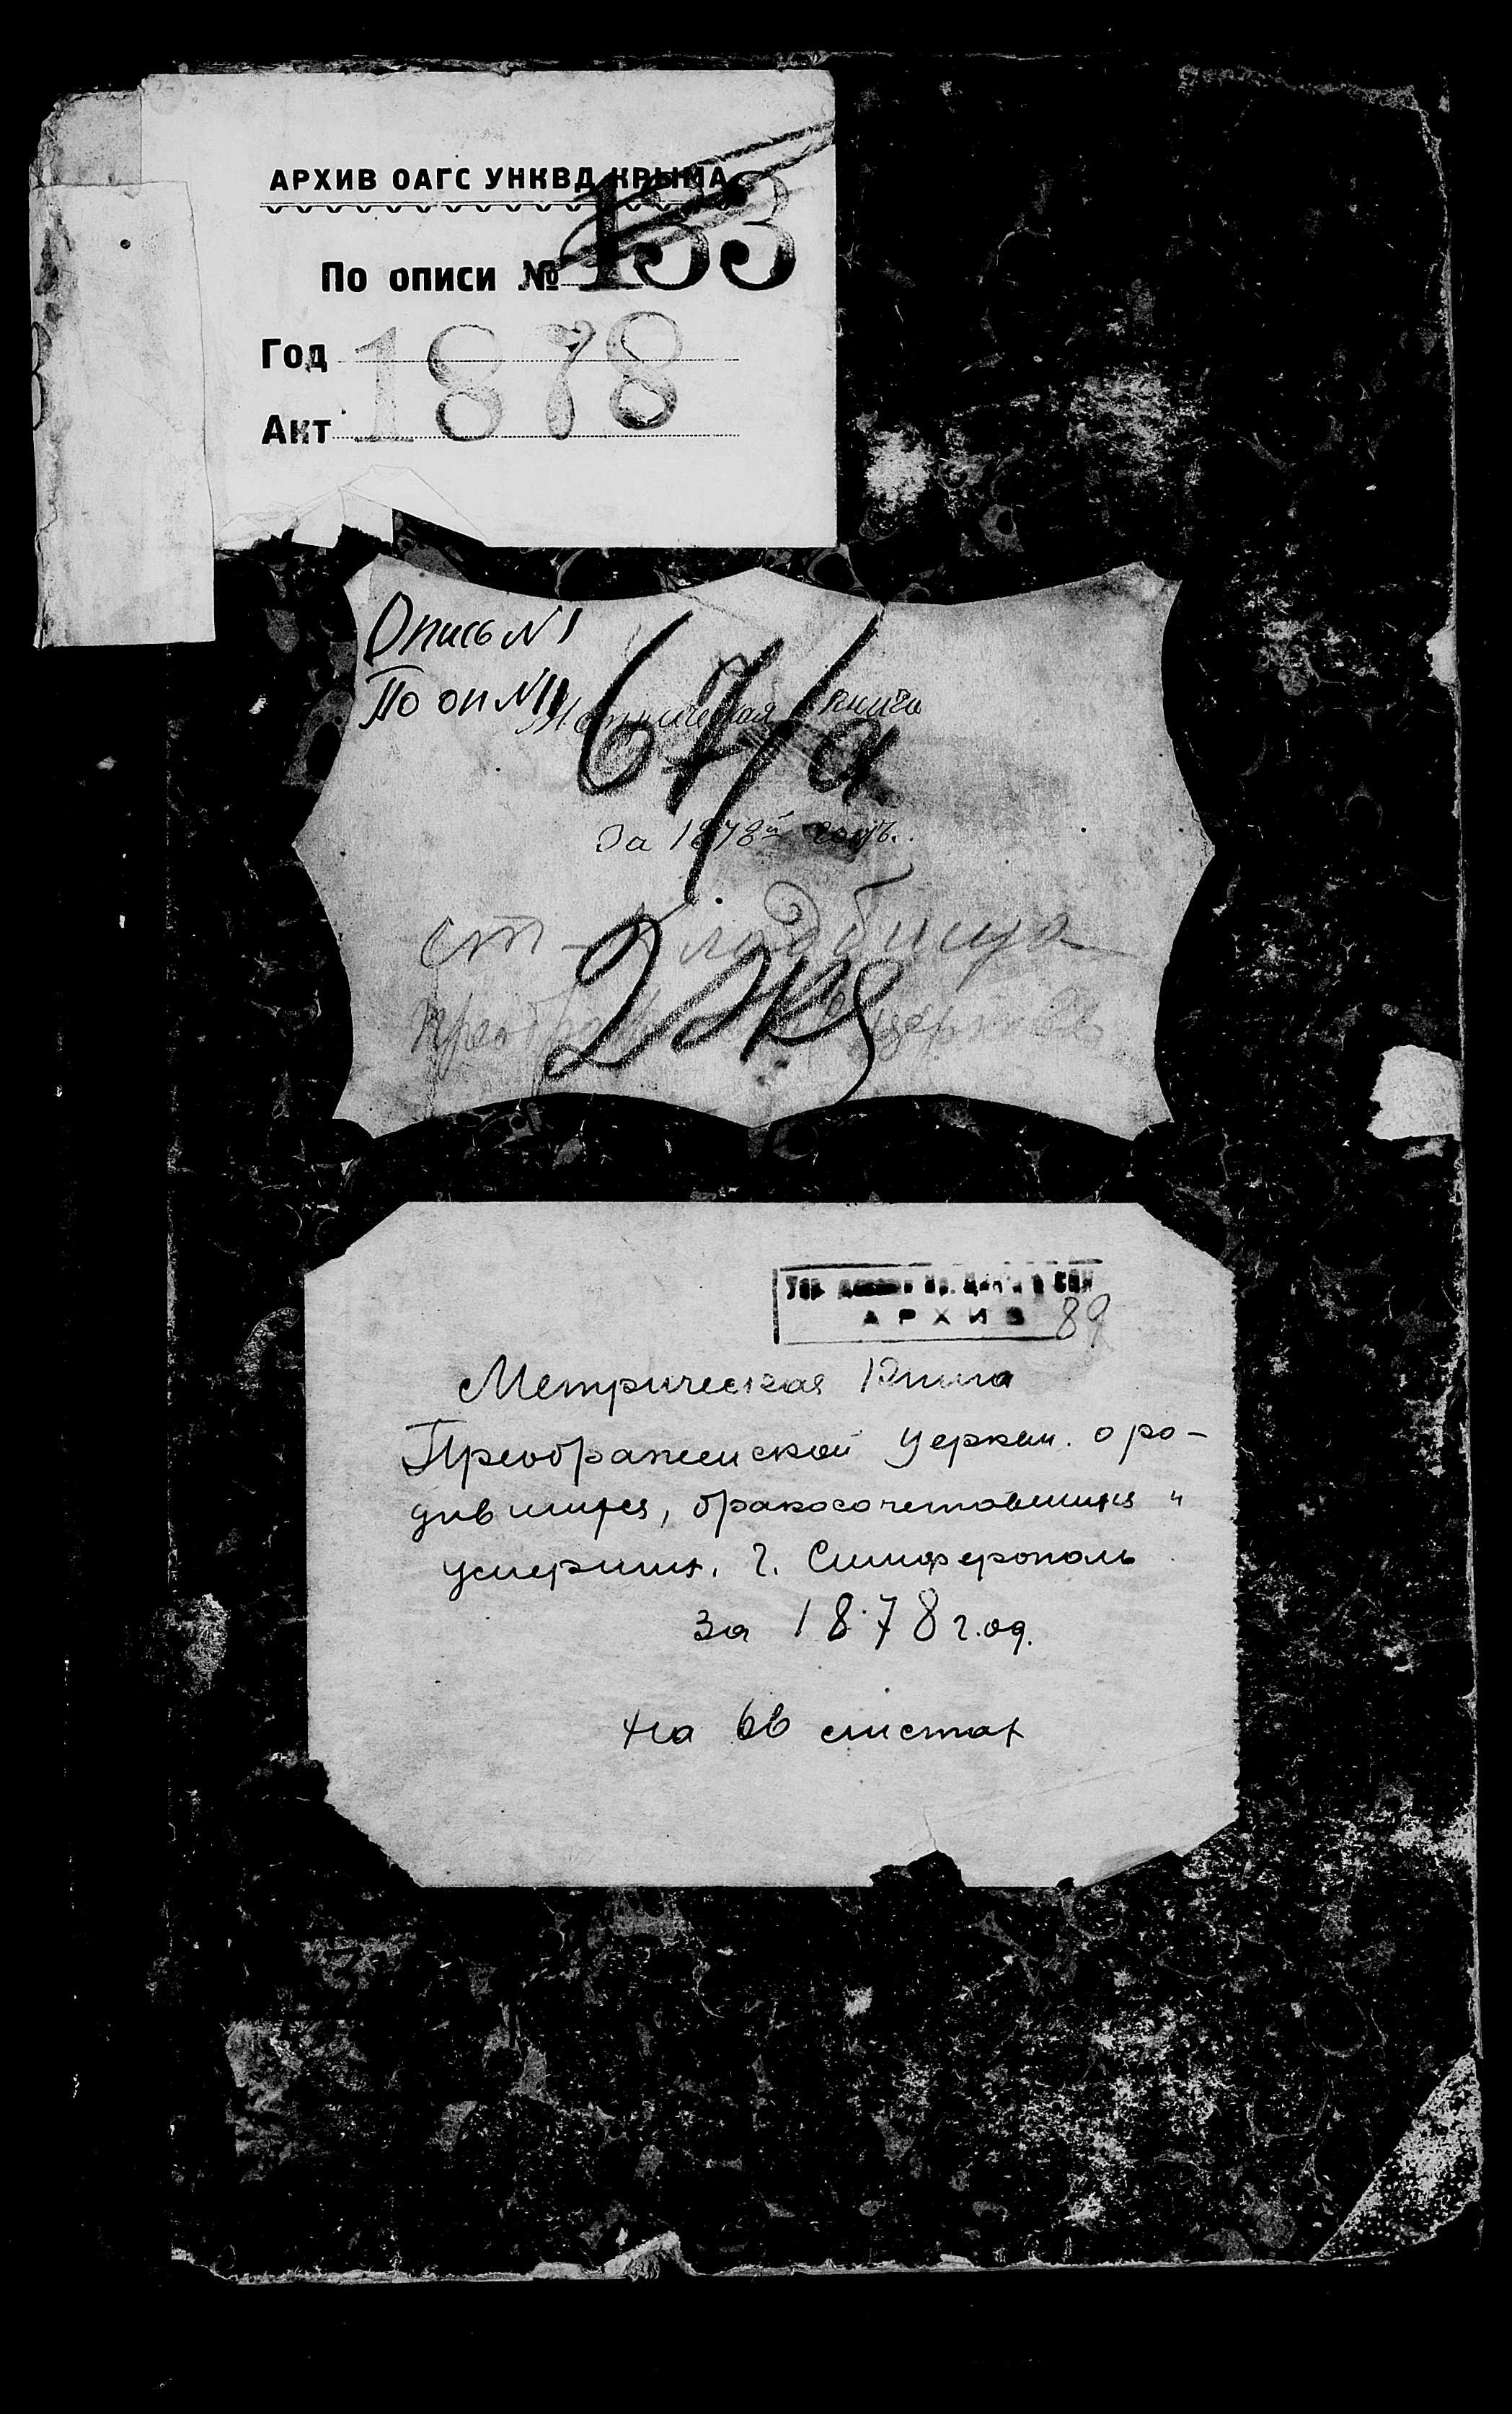 АРХИВ ОАГС УНКВД КРЫМА
По описи № 153
Год 1878
Акт
Опись № 1
По оп № 11
Метрическая книга
67/а
За 1878й годъ.
кладбища
2 экз
церкви
АРХИВ 89
Метрическая Книга
Преображенской церкви. о ро-
дившихся, бракосочетавшихся и
умерших. г. Симферополь
за 1878 год.
на 66 листах